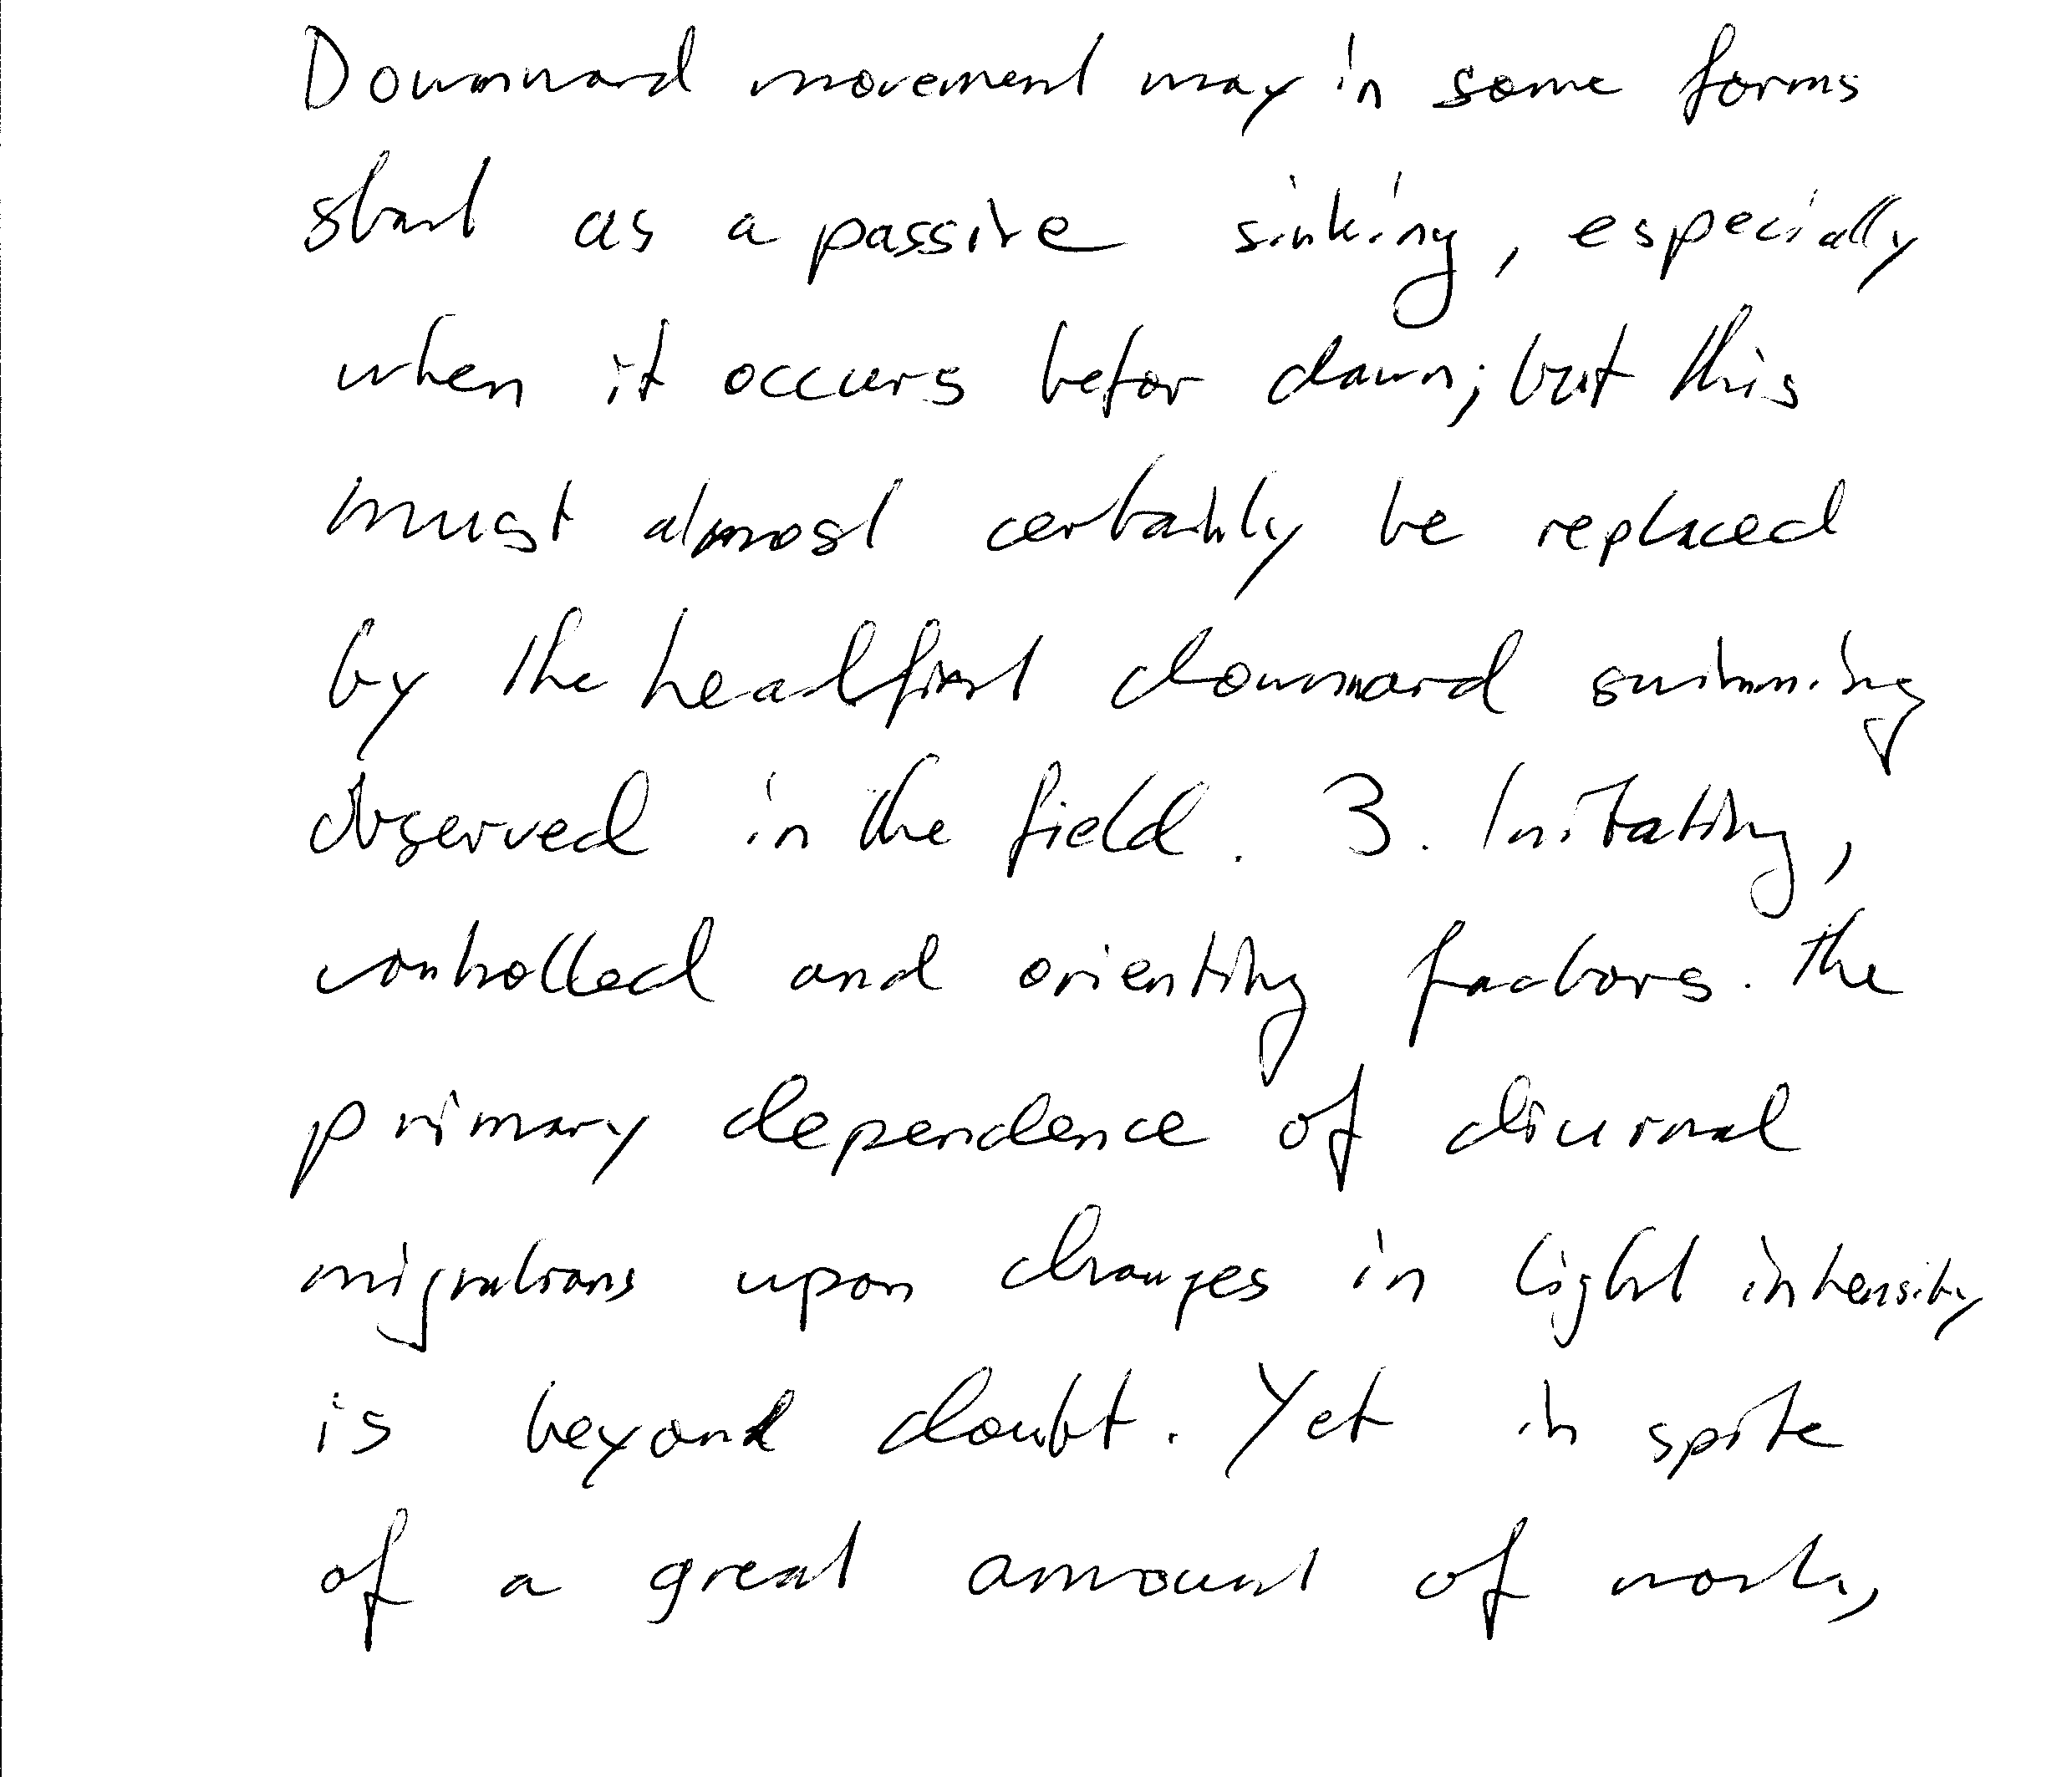 Downward movement may in some forms
start as a passive sinking, especially
when it occurs befor dawn; but this
must almost certainly be replaced
by the headfirst downward swimming
observed in the field. 3. Initating,
controlled and orienting factors. The
primary dependence of diurnal
migrations upon changes in light intensity
is beyond doubt. Yet in spite
of a great amount of work,